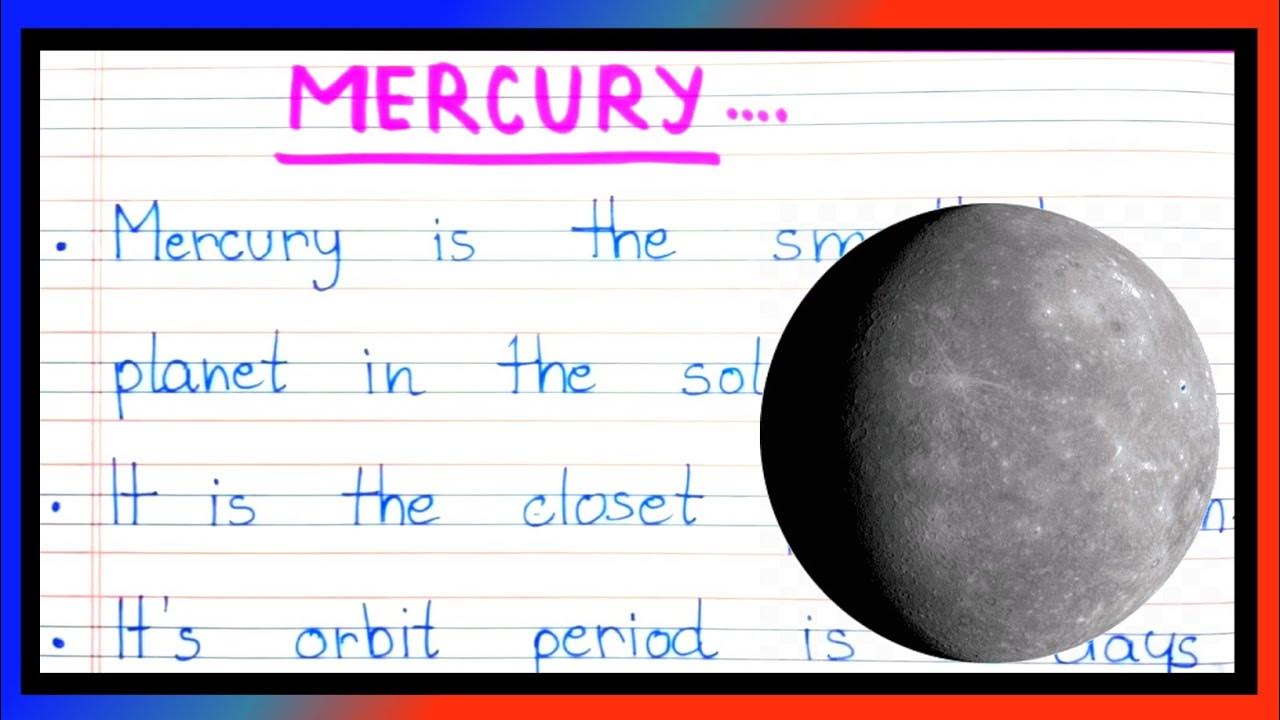 MERCURY....
• Mercury is the sm
planet in the sol
• It is the closet
• It's orbit period is days